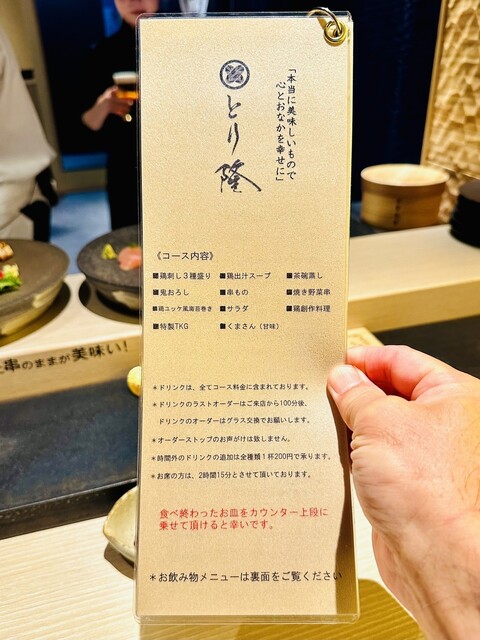 「本当に美味しいもので
心とおなかを幸せに」
とり隆
《コース内容》
■鶏刺し３種盛り ■鶏出汁スープ ■茶碗蒸し
■鬼おろし ■串もの ■焼き野菜串
■鶏ユッケ風海苔巻き ■サラダ ■鶏創作料理
■特製TKG ■くまさん（甘味）
＊ドリンクは、全てコース料金に含まれております。
＊ドリンクのラストオーダーはご来店から100分後。
ドリンクのオーダーはグラス交換でお願いします。
＊オーダーストップのお声がけは致しません。
＊時間外のドリンクの追加は全種類１杯200円で承ります。
＊お席の方は、2時間15分とさせて頂いております。
食べ終わったお皿をカウンター上段に
乗せて頂けると幸いです。
＊お飲み物メニューは裏面をご覧ください
串のままが美味い!